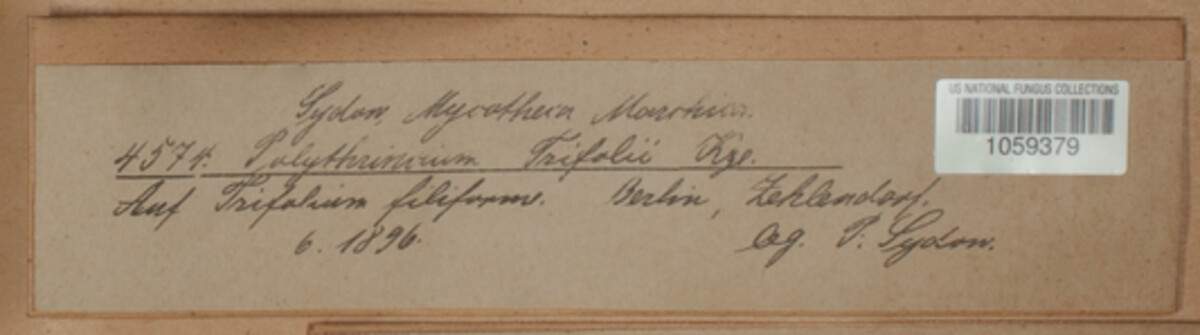 Sydow, Mycotheca Marchica.
4574. Polythrincium Trifolii Kze.
Auf Trifolium filiforme. Berlin, Zehlendorf.
6. 1896. leg. P. Sydow.
US NATIONAL FUNGUS COLLECTIONS
1059379